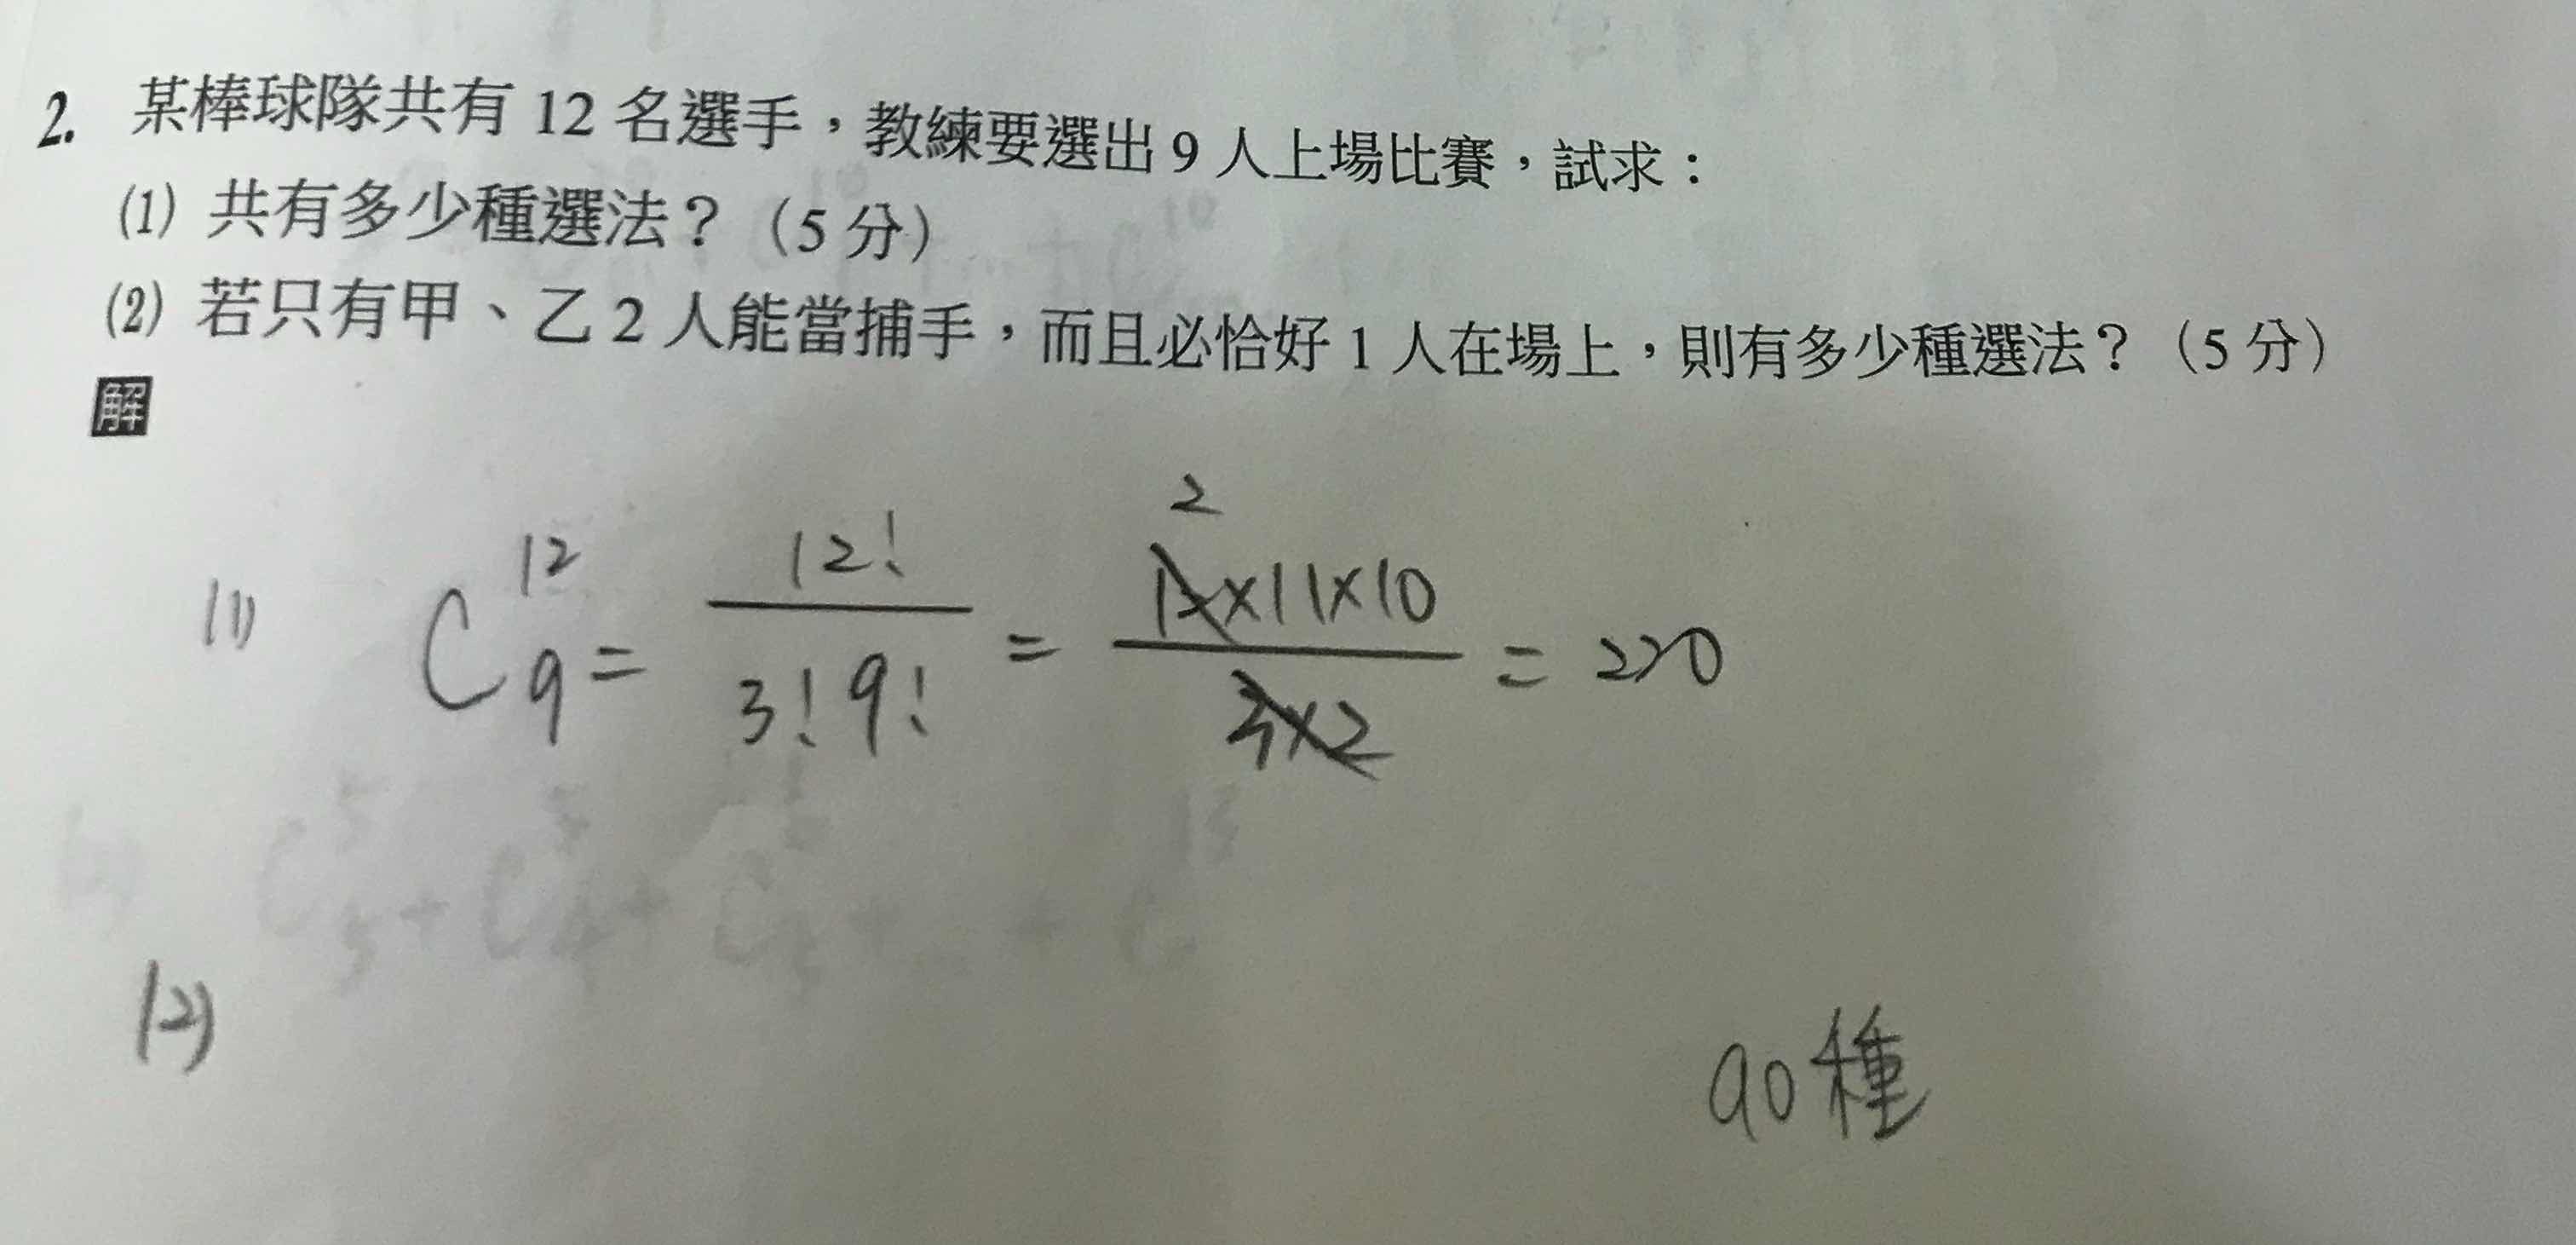 2. 某棒球隊共有 12 名選手，教練要選出 9 人上場比賽，試求：
(1) 共有多少種選法？（5 分）
(2) 若只有甲、乙 2 人能當捕手，而且必恰好 1 人在場上，則有多少種選法？（5 分）
解
(1) C^12_9 = 12! / 3! 9! = 2 12×11×10 / 3×2 = 220
(2) 90種